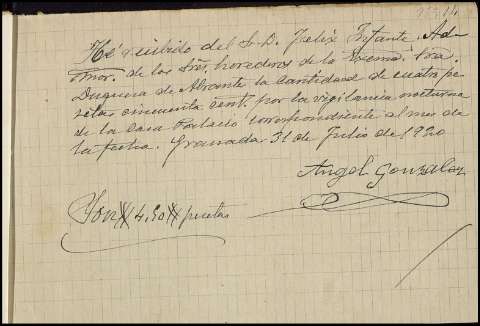 He recibido del Sr. D. Felix Infante. Ad-
mor. de los Sres. herederos de la Excma. Sra.
Duquesa de Abrante la cantidad de cuatro pe
setas cincuenta cent. por la vigilancia nocturna
de la Casa Palacio correspondiente al mes de
la fecha. Granada 31 de Julio de 1920
Angel Gonzalez
Son 4,50 pesetas